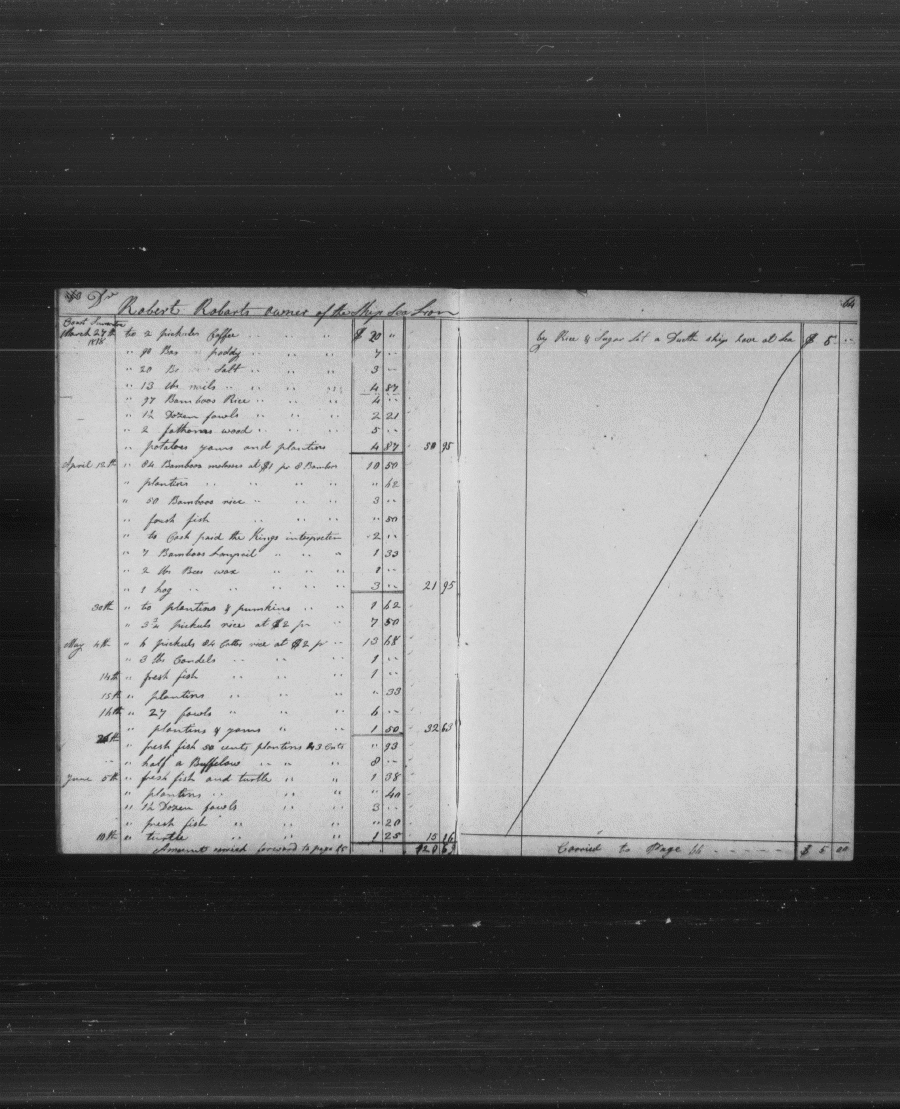 63 Dr
Robert Robarts owner of the Ship Sea Lion
Coast Sumatra
March 27th to 2 pickules Coffee $ 20 "
1838 " 90 Bas poddy 7 ..
" 20 Bs Salt 3 ..
" 13 lbs nails 4 87
" 97 Bamboos Rice 4 ..
" 12 Dozen fowls 2 21
" 2 fathomes wood 5 ..
" potatoes yams and plantins 4 87 50 95
April 12th " 84 Bamboos molases at $1 pr 8 Bamboos 10 50
" plantins " 62
" 50 Bamboos rice 3 ..
" fresh fish " 50
" to Cash paid the Kings interpreter 2 ..
" 7 Bamboos Lampoil 1 33
" 2 lbs Bees wax 1 ..
" 1 hog 3 .. 21 95
30th " to plantins & pumkins 1 62
" 3 3/4 pickuls rice at $2 pr 7 50
May 4th " 6 pickuls 84 Cattes rice at $2 pr 13 68
" 3 lbs Candels 1 ..
14th " fresh fish 1 ..
15th " plantins " 33
16th " 27 fowls 6 ..
" plantins & yams 1 50 32 63
26th " fresh fish 50 cents plantins 43 Cents " 93
" half a Buffelow 8 ..
June 5th " fresh fish and turtle 1 38
" plantins " 40
" 12 Dozen fowls 3 ..
" fresh fish " 20
10th " turtle 1 25 15 16
Amounts carried forward to page 65 120 69
64
by Rice & Sugar Let a Duth ship have at Sea $ 5 ..
Carried to Page 66 $ 5 00